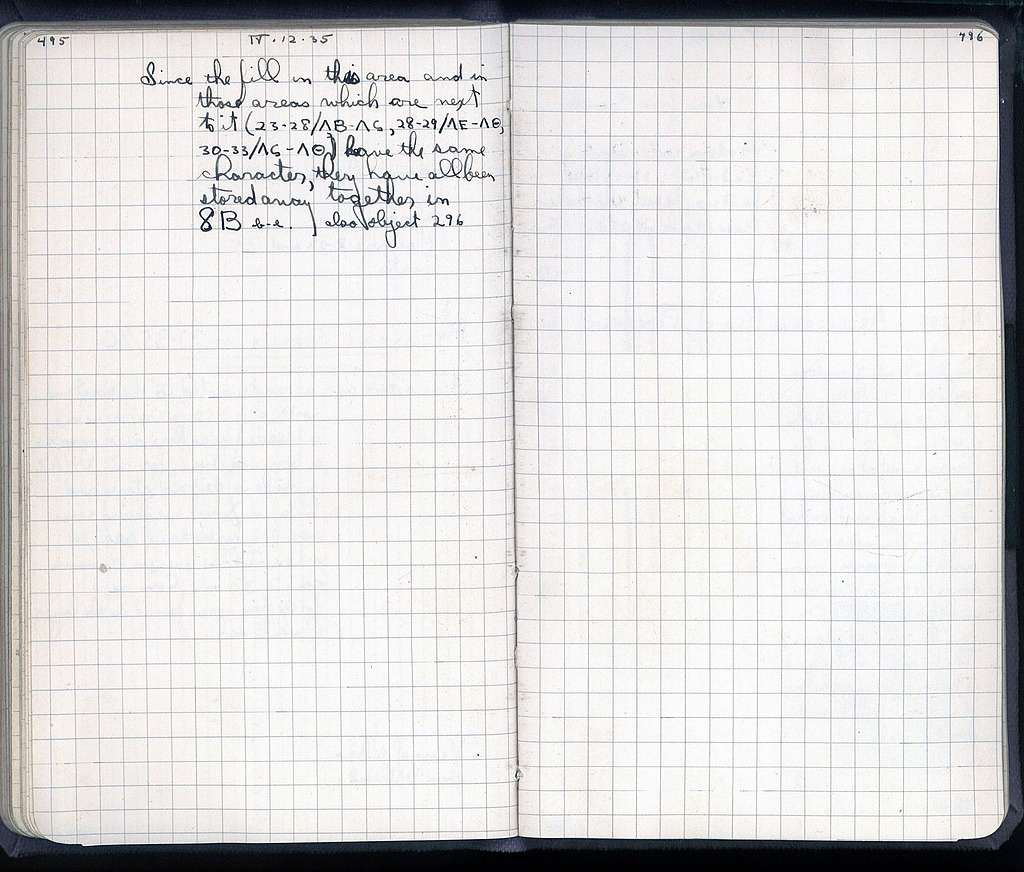 495
IV.12.35
Since the fill in this area and in
those areas which are next
to it (23-28/ΛΒ-ΛϚ, 28-29/ΛΕ-ΛΘ,
30-33/ΛϚ-ΛΘ) have the same
character, they have all been
stored away together in
8B b-e. also object 296
496